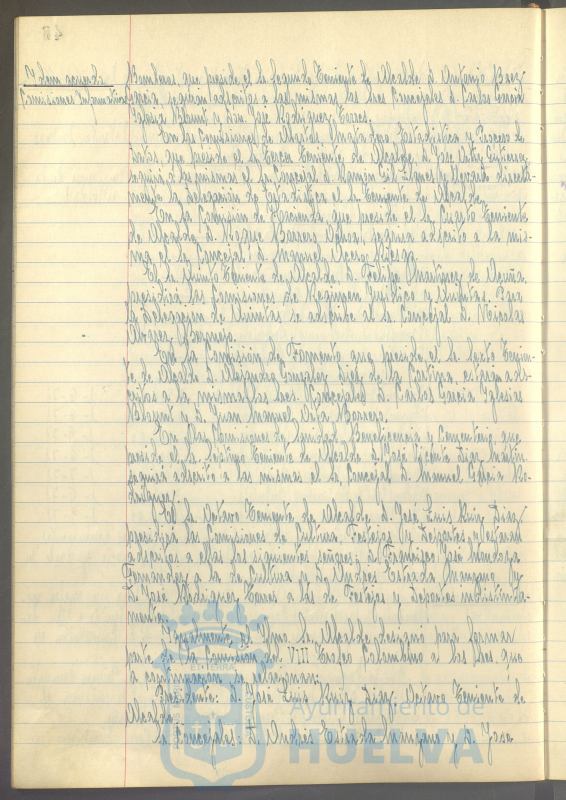 Idem acuerdo
Comisiones Informativas
Bomberos, que preside el Sr. Segundo Teniente de Alcalde D. Antonio
seguirán adscritos a las mismas los Sres. Concejales D. Carlos García
Iglesias Blount y Don José Rodriguez Torres.
En las Comisiones de Abastos, Matadero, Estadística y
que preside el Sr. Tercer Teniente de Alcalde, D. José
seguirá en las mismas el Sr. Concejal D. Ramón
la Delegación de Estadística el Sr. Teniente de Alcalde.
En la Comisión de Hacienda, que preside el Sr. Cuarto Teniente
de Alcalde, D. Roque Barrero Ochoa, seguirá adscrito a la mis-
ma el Sr. Concejal D. Manuel
El Sr. Quinto Teniente de Alcalde, D. Felipe Martinez de Acuña,
presidirá las Comisiones de Regimen Jurídico y Quintas. Para
la Delegación de Quintas se adscribe al Sr. Concejal D. Nicolas
Alvarez Bermejo.
En la Comisión de Fomento que preside el Sr. Sexto Tenien-
te de Alcalde D. Alejandro Gonzalez Diez de la Cortina, estarán ads-
critos a la misma los Sres. Concejales D. Carlos García Iglesias
Blount y D. Juan Manuel Vera Borrero.
En las Comisiones de Sanidad, Beneficencia y Cementerio, que
preside el Sr. Septimo Teniente de Alcalde D. José Vicente Diaz Martin,
seguirá adscrito a las mismas el Sr. Concejal D. Manuel García Ro-
driguez.
El Sr. Octavo Teniente de Alcalde, D. José Luis Ruiz Diaz,
presidirá las Comisiones de Cultura, Festejos y Deportes y estarán
adscritos a ellas los siguientes señores: D. Francisco José Mendoza
Fernandez a la de Cultura y D. Andrés Estrada Manzano y
D. José Rodriguez Torres a las de Festejos y Deportes indistinta-
mente.
Igualmente, el Iltmo. Sr. Alcalde designó para formar
parte de la Comisión del VIII Trofeo Colombino a los Sres. que
a continuación se relacionan:
Presidente: D. José Luis Ruiz Diaz, Octavo Teniente de
Alcalde.
Sr. Concejales: D. Andrés Estrada Manzano y D. José
Ayuntamiento de
HUELVA